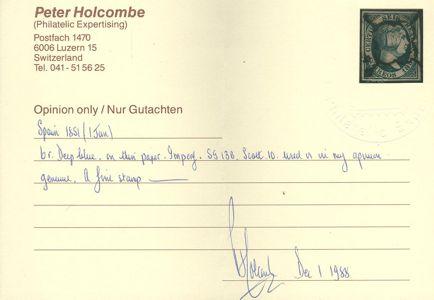 Peter Holcombe
(Philatelic Expertising)
Postfach 1470
6006 Luzern 15
Switzerland
Tel. 041 - 51 56 25
Opinion only / Nur Gutachten
Spain 1851 (1 Jan)
6r. Deep blue. on thin paper. Imperf. SG 13B. Scott 10. used is in my opinion
genuine. A fine stamp
Dec 1 1988